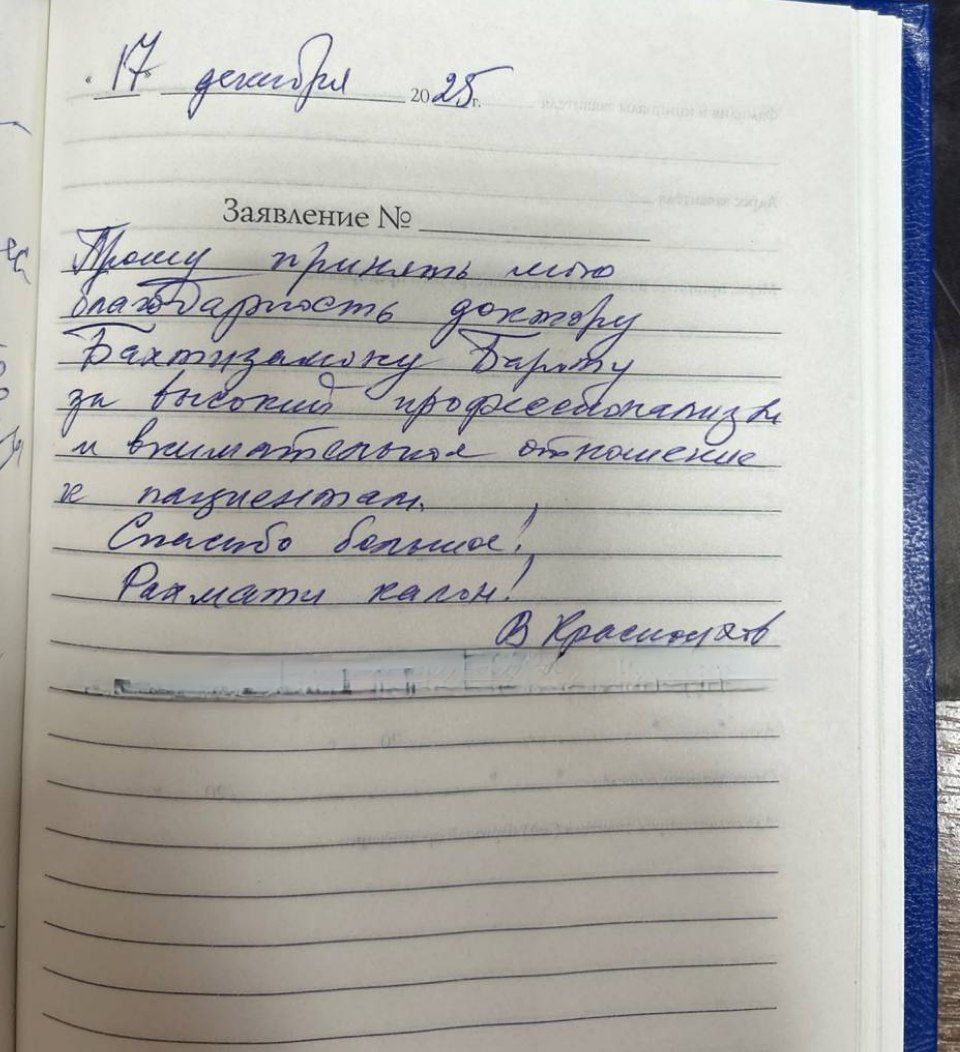 « 17 » декабря 2025 г.
Заявление №
Прошу принять мою
благодарность доктору
Бахтизамону
за высокий профессионализм
и внимательное отношение
к пациентам.
Спасибо большое!
Рахмати калон!
В